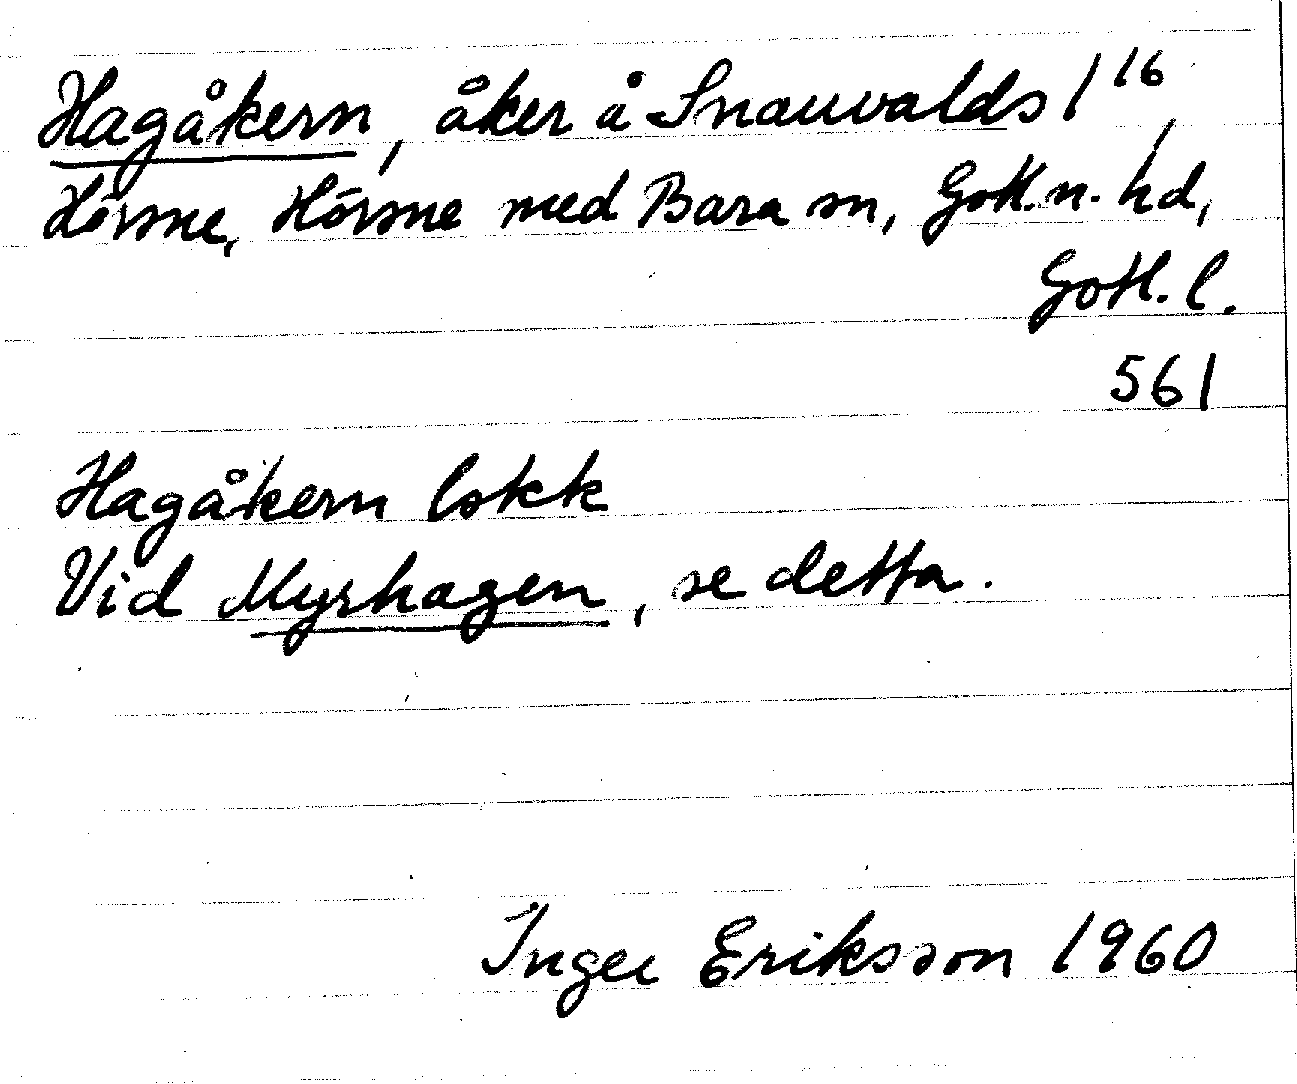 Hagåkern, åker å Snauvalds 1¹⁶,
Hörsne, Hörsne med Bara sn, Gotl. n. hd,
Gotl. l.
561
Hagåkern lokk
Vid Myrhagen, se detta.
Inger Eriksson 1960